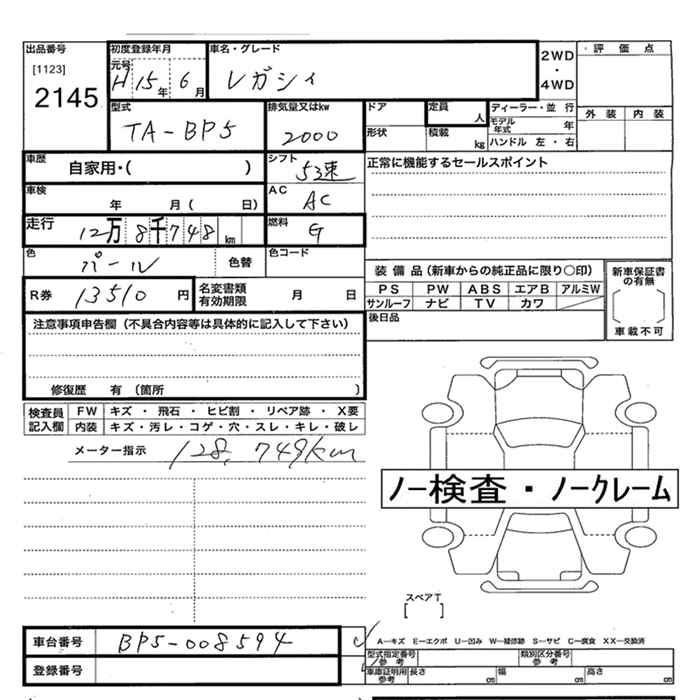 出品番号
[1123]
2145
初度登録年月
元号
H 15年 6月
車名・グレード
レガシィ
2WD
・
4WD
・評価点
外装 内装
型式
TA-BP5
排気量又はkw
2000
ドア
形状
定員
人
積載
kg
ディーラー・並行
モデル年式 年
ハンドル 左・右
車歴
自家用・( )
シフト
5速
正常に機能するセールスポイント
車検
年 月( 日)
AC
AC
走行
12万8千748km
燃料
G
色
パール
色替
色コード
装備品(新車からの純正品に限り○印)
PS PW ABS エアB アルミW
サンルーフ ナビ TV カワ
新車保証書の有無
車載不可
R券
13510円
名変書類
有効期限
月 日
後日品
注意事項申告欄(不具合内容等は具体的に記入して下さい)
修復歴 有(箇所 )
検査員記入欄
FW キズ・飛石・ヒビ割・リペア跡・X要
内装 キズ・汚レ・コゲ・穴・スレ・キレ・破レ
メーター指示 128,749km
ノー検査・ノークレーム
スペアT
[ ]
車台番号
BP5-008594
登録番号
A-キズ E-エクボ U-凹み W-補修跡 S-サビ C-腐食 XX-交換済
型式指定番号
参考
類別区分番号
参考
車庫証明用
参考
長さ cm 幅 cm 高さ cm